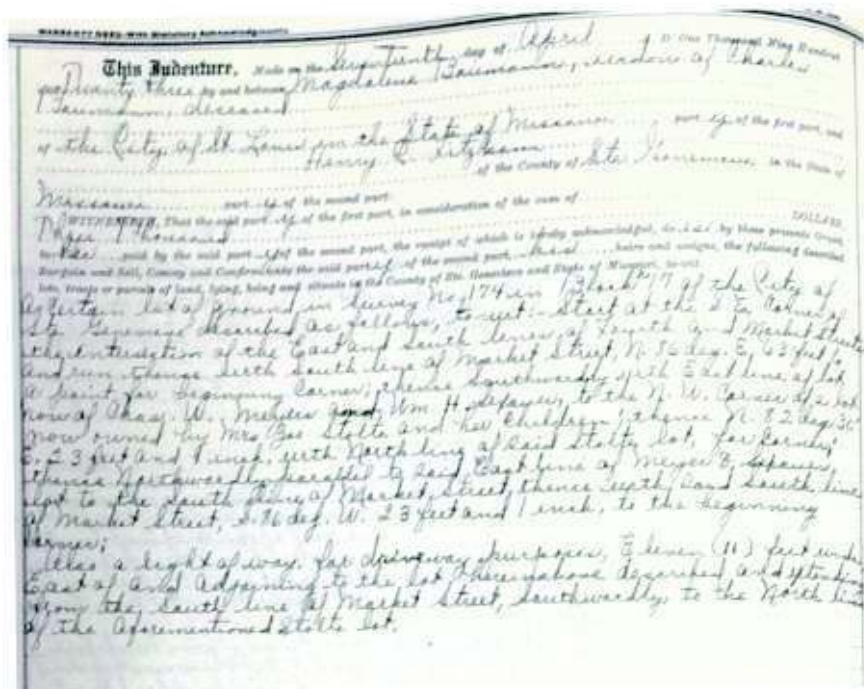 WARRANTY DEED With Statutory Acknowledgments
This Indenture, Made on the Seventeenth day of April One Thousand Nine Hundred
Twenty three by and between Magdalena Baumann, widow of Charles
Baumann, deceased
of the City of St. Louis in the State of Missouri part y of the first part, and
Henry of the County of Ste Genevieve, in the State of
Missouri part y of the second part
WITNESSETH, That the said part y of the first part, in consideration of the sum of
Three Thousand DOLLARS
to her paid by the said part y of the second part, the receipt of which is hereby acknowledged, does by these presents Grant,
Bargain and Sell, Convey and Confirm unto the said part y of the second part, his heirs and assigns, the following described
lots, tracts or parcels of land, lying, being and situate in the County of Ste. Genevieve and State of Missouri, to-wit:
A certain lot of ground in Survey No, 174 in Block #17 of the City of
Ste. Genevieve described as follows, to-wit:- Start at the S. E. Corner of
the intersection of the East and South lines of Fourth and Market Streets
and run thence with South line of Market Street, N. 86 deg. E. 63 feet, to
a point for beginning corner; thence Southwardly with East line of lot
now of Chas. W. Meyer and Wm H. to the N. W. Corner of a lot
now owned by Mrs Stolte and her Children; thence N. 82 deg 30
E. 23 feet and 1 inch. with North line of said Stolte lot, for corner;
thence Northwardly parallel to said East line of Meyer &
lot to the South line of Market Street, thence with said South line
of Market Street, S. 86 deg. W. 23 feet and 1 inch, to the beginning
corner;
Also a right of way, for driveway purposes, Eleven (11) feet wide
East of and adjoining to the lot hereinabove described and extending
from the South line of Market Street, southwardly to the North line
of the aforementioned Stolte lot.